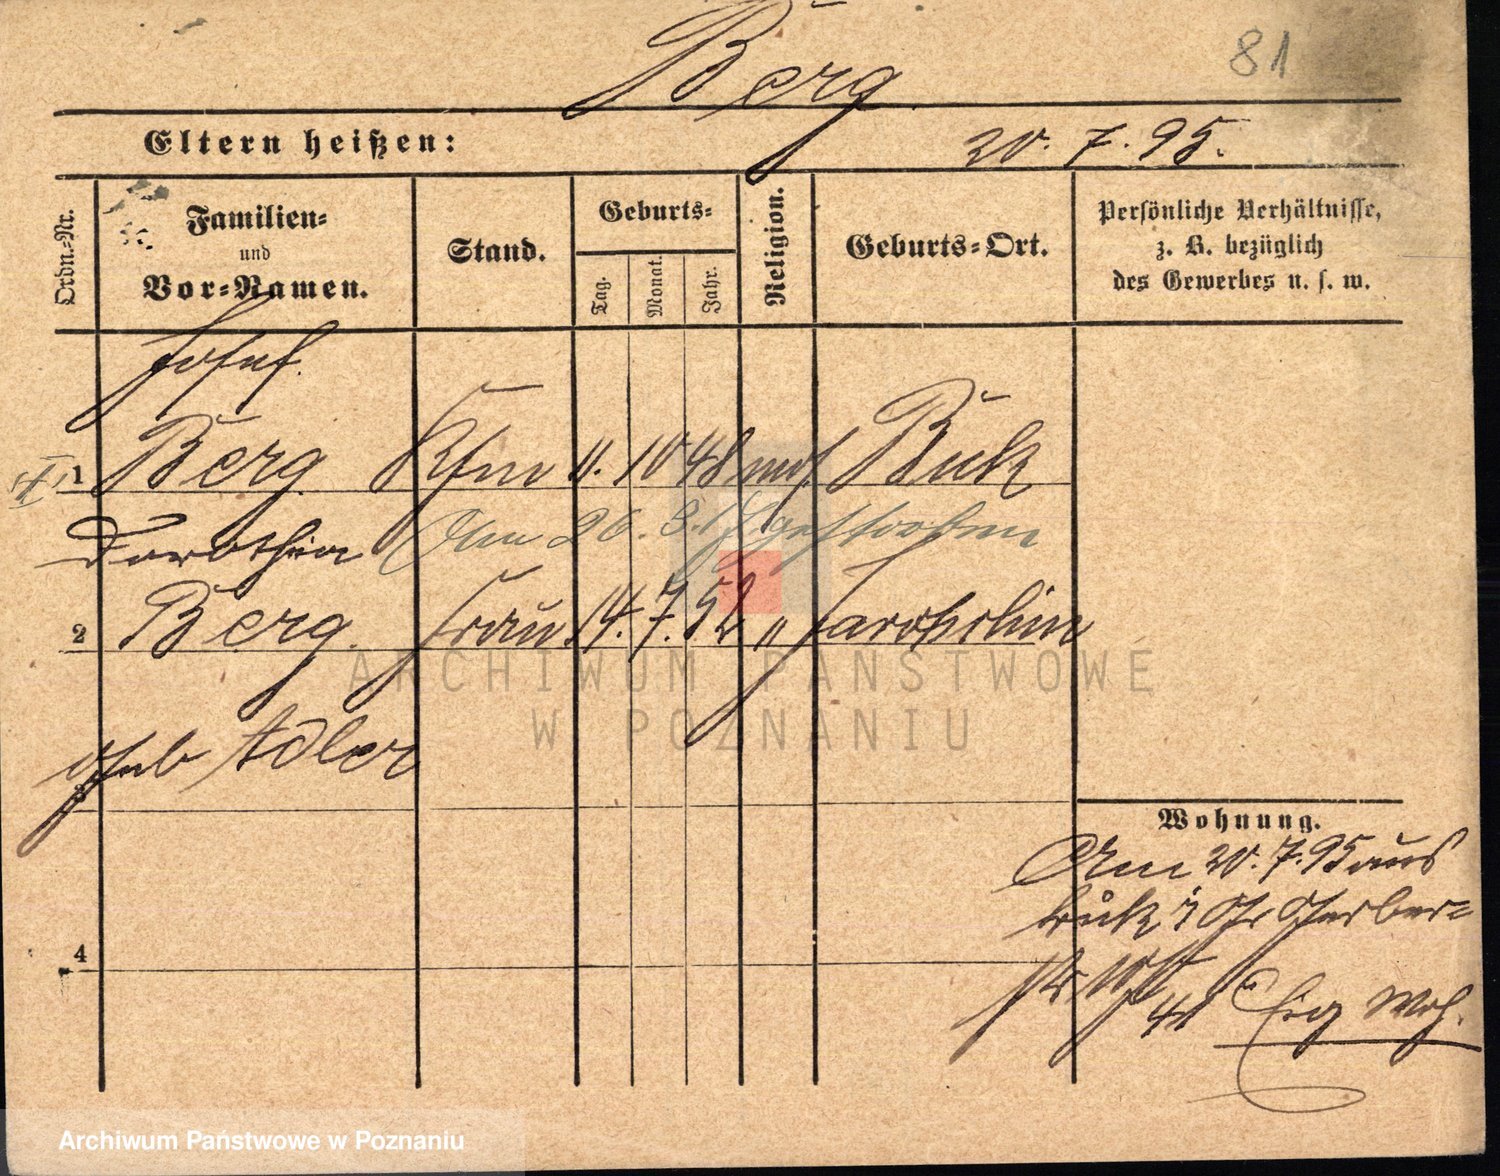 Berg.
81
Eltern heißen:
20. 7. 95.
Ordn.-Nr.
Familien-
und
Vor-Namen.
Stand.
Geburts-
Tag.
Monat.
Jahr.
Religion.
Geburts-Ort.
Persönliche Verhältnisse,
z. B. bezüglich
des Gewerbes u. s. w.
Josef.
1 Berg Kfm 11. 10 48 mos. Buk
Dorothea Am 26. 3. gestorben
2 Berg. Frau 14. 7. 52 " Jarotschin
geb Adler
3
Wohnung.
Am 20. 7. 95 aus
Buk Gr Gerber-
str
4
Eig Woh.
ARCHIWUM PAŃSTWOWE
W POZNANIU
Archiwum Państwowe w Poznaniu